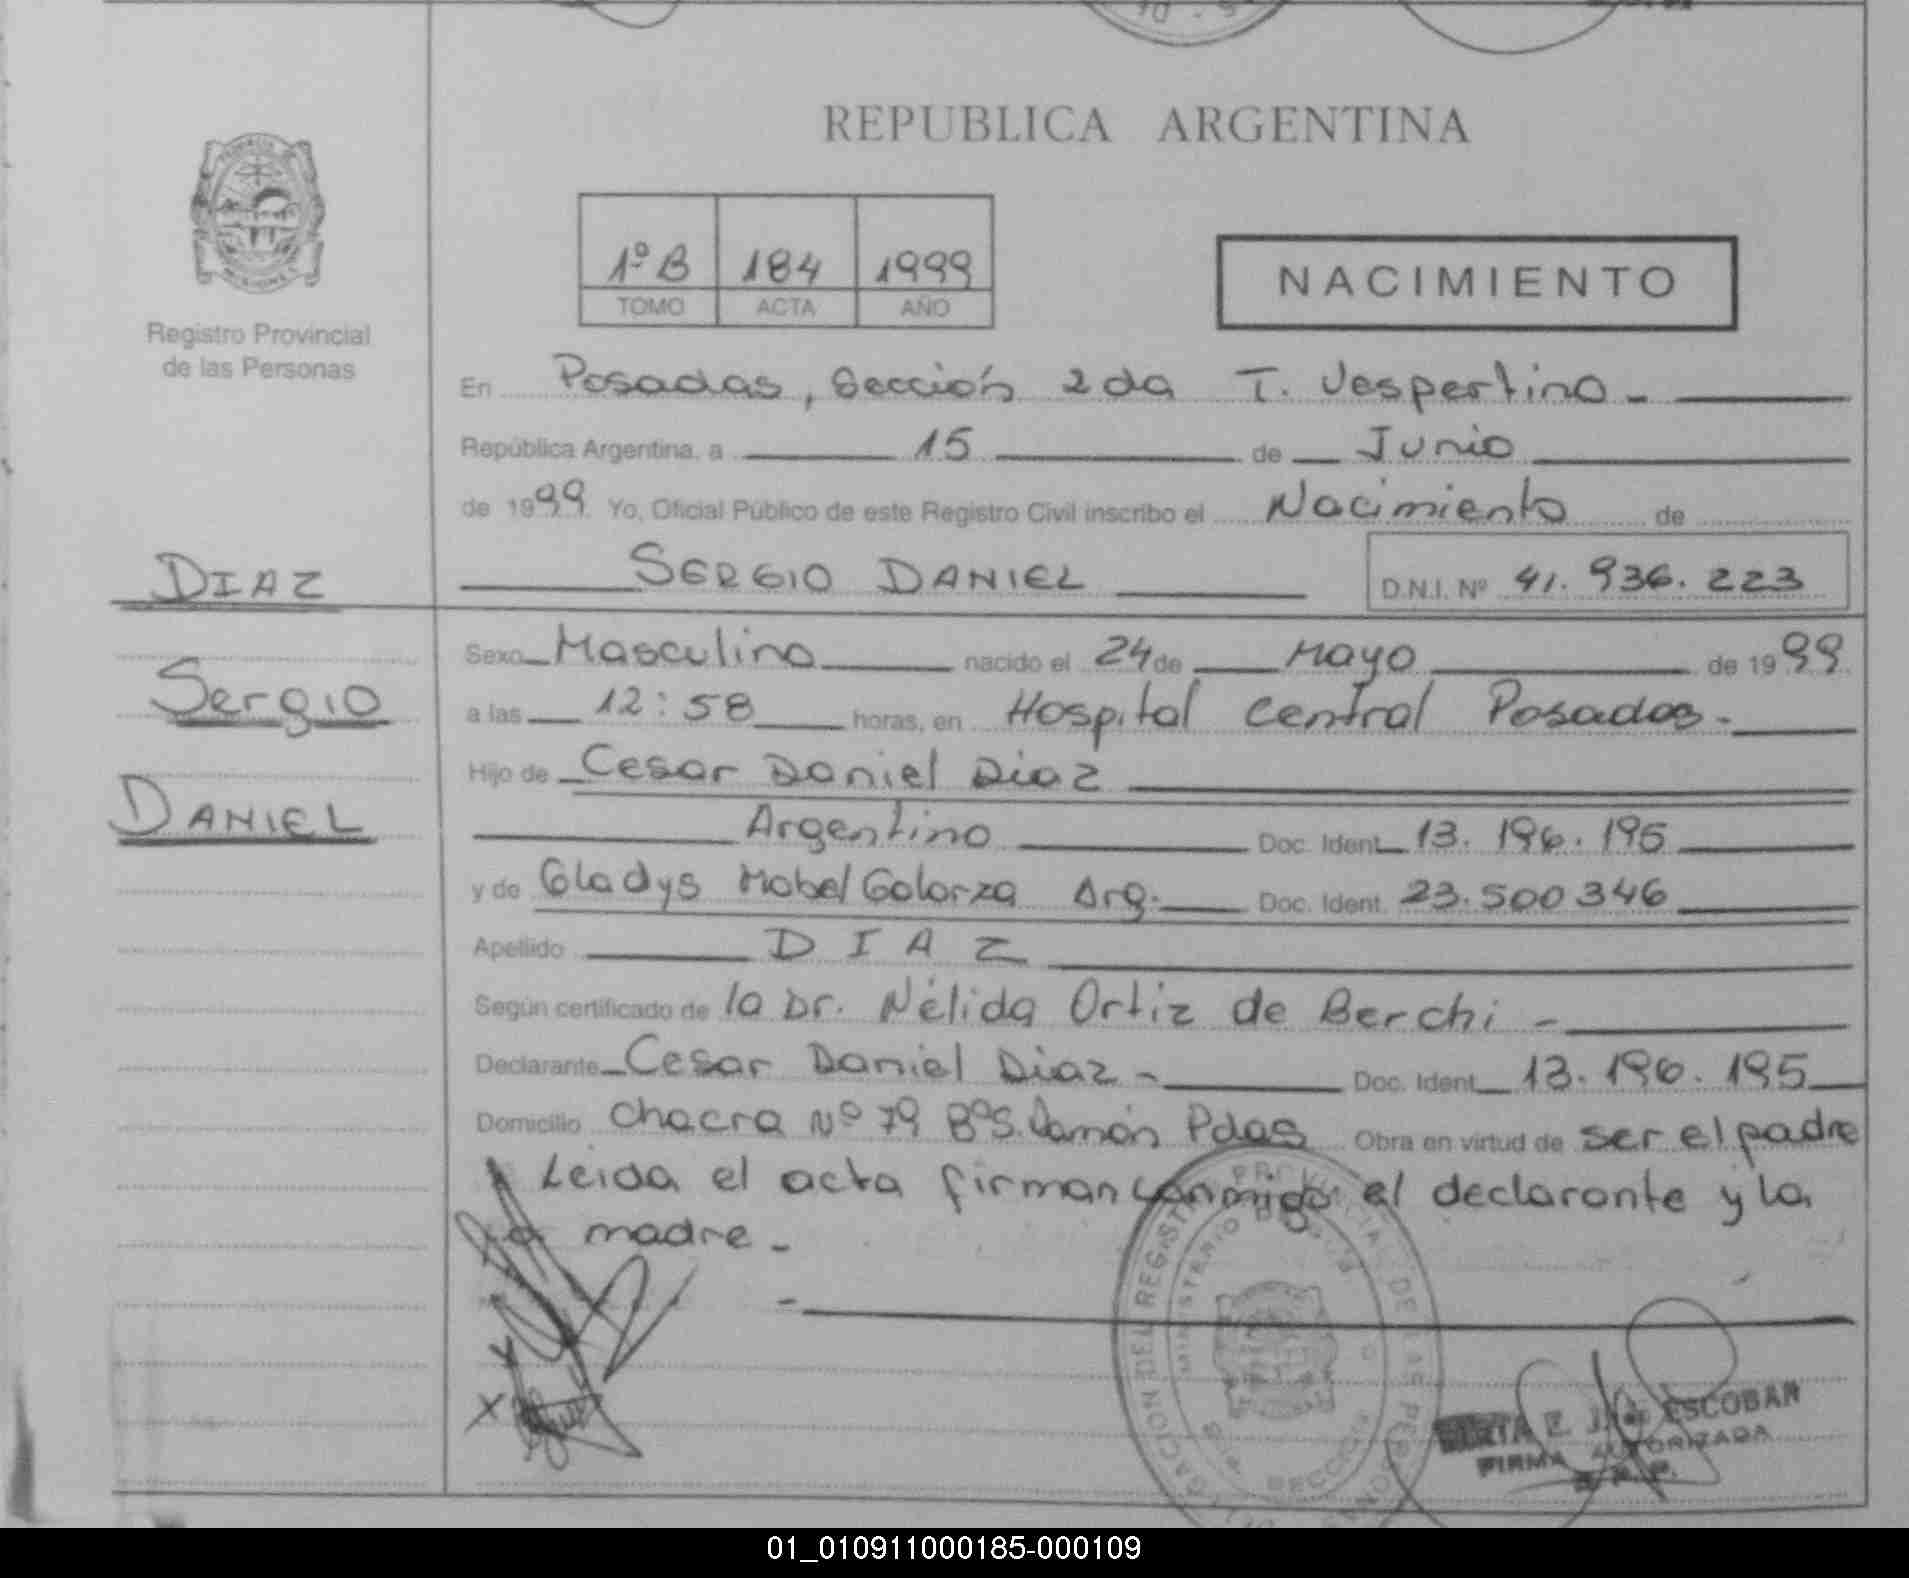 REPUBLICA ARGENTINA
1º B 184 1999
TOMO ACTA AÑO
NACIMIENTO
Registro Provincial
de las Personas
En Posadas, Sección 2da T. Vespertino -
República Argentina, a 15 de Junio
de 1999 Yo, Oficial Público de este Registro Civil inscribo el Nacimiento de
SERGIO DANIEL D.N.I. Nº 41.936.223
DIAZ
Sergio
DANIEL
Sexo Masculino nacido el 24 de Mayo de 1999
a las 12:58 horas, en Hospital Central Posadas -
Hijo de Cesar Daniel Diaz
Argentino Doc. Ident. 13.196.195
y de Gladys Mabel Galarza Arg. Doc. Ident. 23.500346
Apellido DIAZ
Según certificado de la Dr. Nélida Ortiz de Berchi -
Declarante Cesar Daniel Diaz - Doc. Ident. 13.196.195
Domicilio Chacra Nº 79 Bº S. Ramón Pdas Obra en virtud de ser el padre
Leida el acta firman conmigo el declarante y la
madre -
ESCOBAR
FIRMA AUTORIZADA
01_010911000185-000109